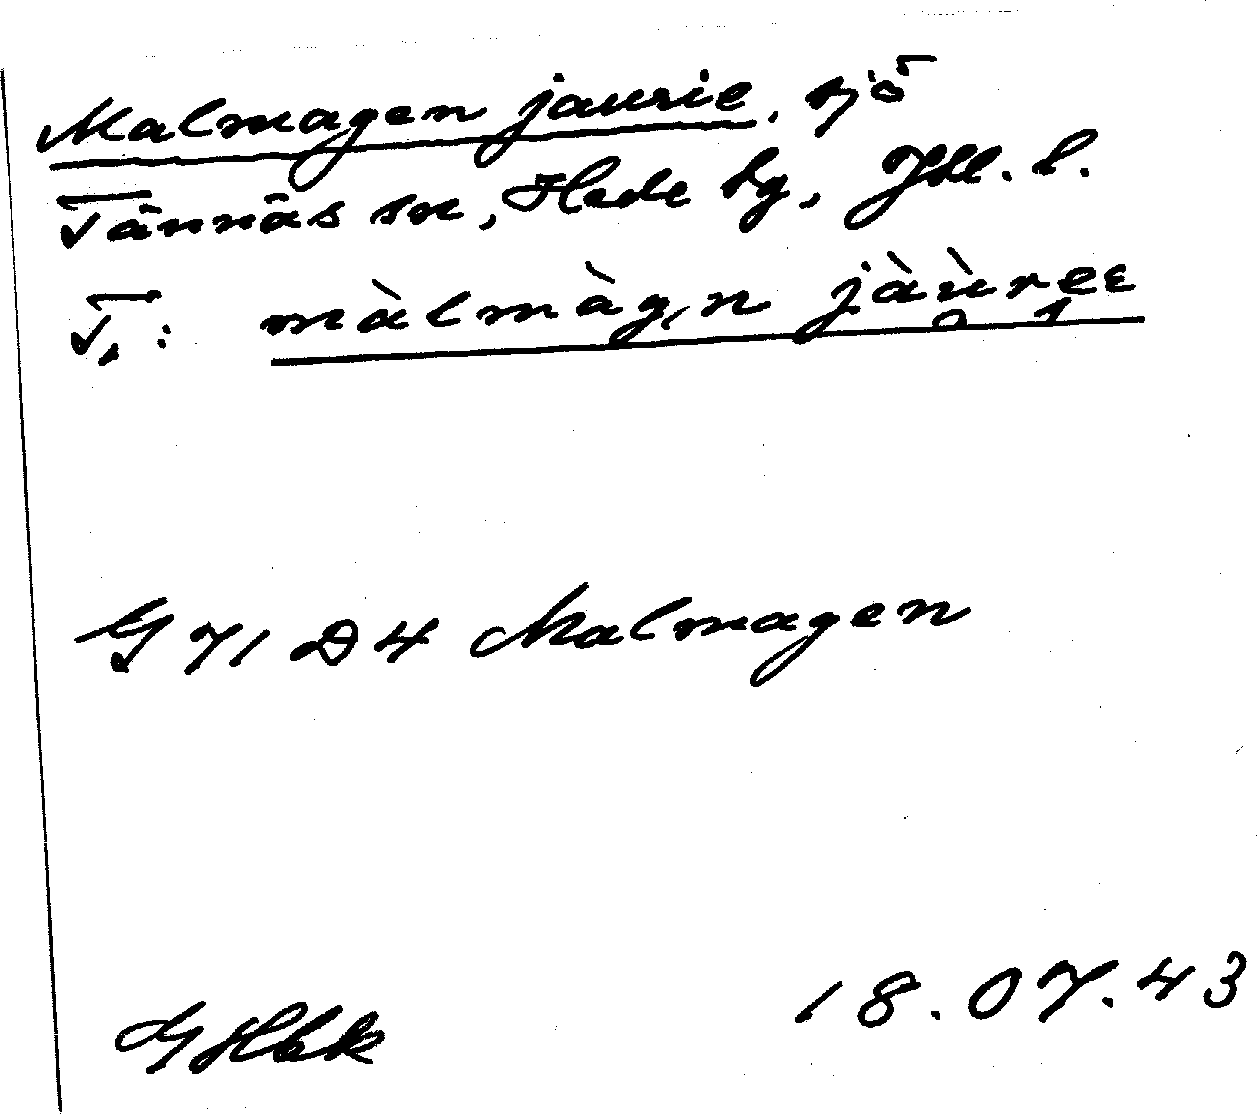 Malmagen jaurie, sjö
Tännäs sn, Hede tg, Jtl. l.
T,: màlmàg,n jàùree
G 71 D4 Malmagen
GHbk 18.07.43